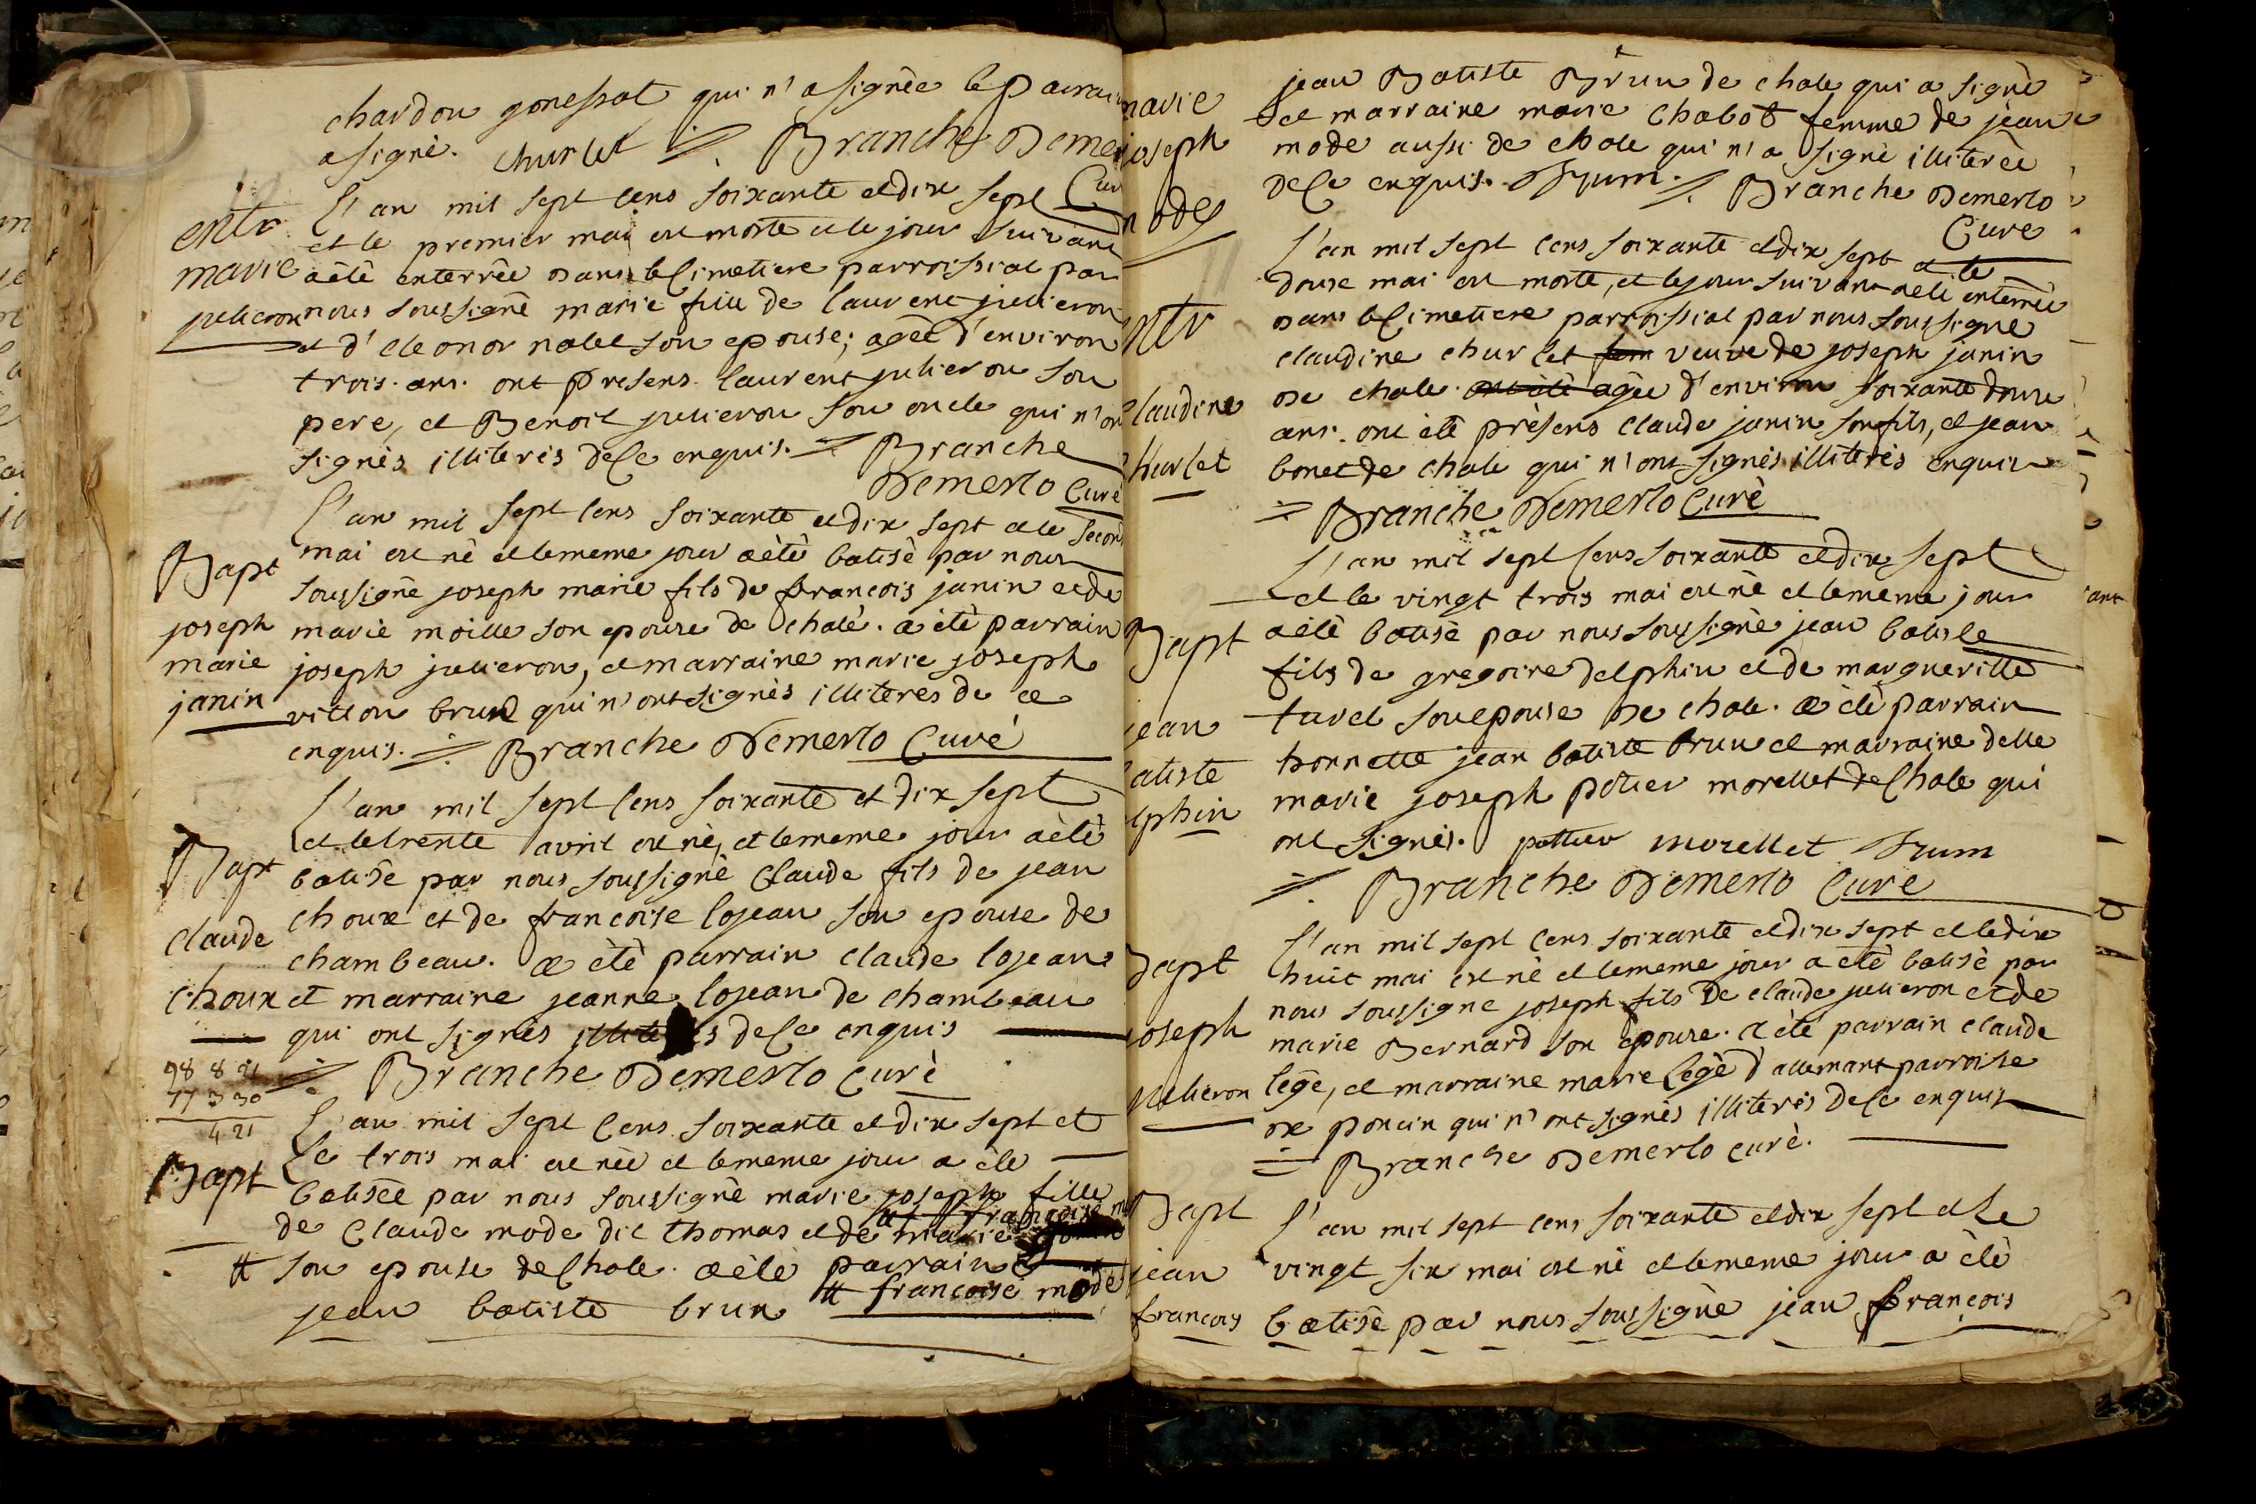 chardon gonessat qui n'a signée le parrain
a signè. churlet Branche Demerlo
Curé
entr.
marie
julieron
L'an mil sept cens soixante et dix sept
et le premier mai est morte et le jour suivant
a étè enterrèe dans le cimetiere parroissial par
nous soussignè marie fille de laurent julieron
et d'eleonor nallet son epouse; agèe d'environ
trois ans. ont presens laurent julieron son
pere, et Benoit julieron son oncle qui n'ont
signès illiterès de ce enquis. Branche
Demerlo Curè
Bapt
joseph
marie
janin
L'an mil sept cens soixante et dix sept et le second
mai est nè et le meme jour a étè batisè par nous
soussignè joseph marie fils de francois janin et de
marie moille son epouse de chalè. a étè parrain
joseph julieron, et marraine marie joseph
vitton brun qui n'ont signès illiteres de ce
enquis. Branche Demerlo Curé
Bapt
claude
choux
L'an mil sept cens soixante et dix sept
et le trente avril est nè, et le meme jour a étè
batisè par nous soussignè Claude fils de jean
choux et de francoise lojean son epouse de
chambeau. a étè parrain claude lojean
et marraine jeanne lojean de chambeau
qui ont signès illiterès de ce enquis
Branche Demerlo curè
98 8 21
77 3 30
4 21
Bapt
L'an mil sept cens soixante et dix sept et
le trois mai est nèe et le meme jour a étè
batisèe par nous soussignè marie joseph fille
de Claude mode dit thomas et de marie
# francoise
# son epouse de chale. a étè parrain
# francoise modes
jean batiste brun
marie
joseph
modes
jean Batiste Brun de chale qui a signè
et marraine marie Chabot femme de jean
mode aussi de chale qui n'a signè illiterèe
de ce enquis. Brum. Branche Demerlo
Cure
entr
claudine
churlet
L'an mil sept cens soixante et dix sept et le
douse mai est morte, et le jour suivant a étè enterrèe
dans le cimetiere parroissial par nous soussignè
claudine churlet fem veuve de joseph janin
de chale. ont étè agèe d'environ soixante douse
ans. ont étè prèsens claude janin son fils, et jean
bonet de chale qui n'ont signès illiterès enquis
Branche Demerlo Curè
Bapt
jean
batiste
delphin
L'an mil sept cens soixante et dix sept
et le vingt trois mai est nè et le meme jour
a étè batisè par nous soussignè jean batiste
fils de gregoire delphin et de margueritte
turel son epouse de chale. a étè parrain
honnette jean batiste brun et marraine delle
marie joseph potier morellet de Chale qui
ont signès. pottier morellet Brum
Branche Demerlo Cure
Bapt
joseph
julieron
L'an mil sept cens soixante et dix sept et le dix
huit mai est nè et le meme jour a étè batisè par
nous soussigne joseph fils De claude julieron et de
marie Bernard son epouse. a étè parrain claude
legè, et marraine marie legè d'allemant parroisse
de poncin qui n'ont signès illiterès de ce enquis
Branche Demerlo curè.
Bapt
jean
francois
L'an mil sept cens soixante et dix sept et le
vingt six mai est nè et le meme jour a étè
batisè par nous soussignè jean francois